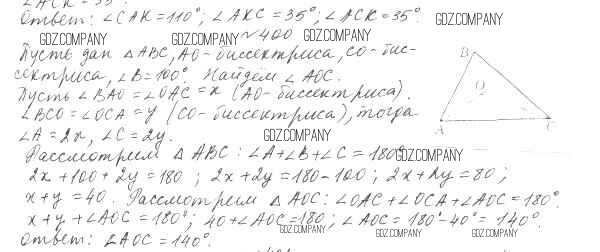 ∠ACK = 35°
Ответ: ∠CAK = 110°; ∠AKC = 35°; ∠ACK = 35°. GDZ.COMPANY
GDZ.COMPANY GDZ.COMPANY №400 GDZ.COMPANY
Пусть дан △ABC, AO-биссектриса, CO-бис-
сектриса, ∠B = 100°. Найдём ∠AOC.
Пусть ∠BAO = ∠OAC = x (AO-биссектриса).
∠BCO = ∠OCA = y (CO-биссектриса), тогда
∠A = 2x, ∠C = 2y. GDZ.COMPANY
Рассмотрим △ABC: ∠A+∠B+∠C = 180° GDZ.COMPANY
2x + 100 + 2y = 180; 2x + 2y = 180 - 100; 2x + 2y = 80;
x + y = 40. Рассмотрим △AOC: ∠OAC + ∠OCA + ∠AOC = 180°.
x + y + ∠AOC = 180°; 40 + ∠AOC = 180; ∠AOC = 180° - 40° = 140°.
GDZ.COMPANY GDZ.COMPANY GDZ.COMPANY
Ответ: ∠AOC = 140°.
B
O
A C